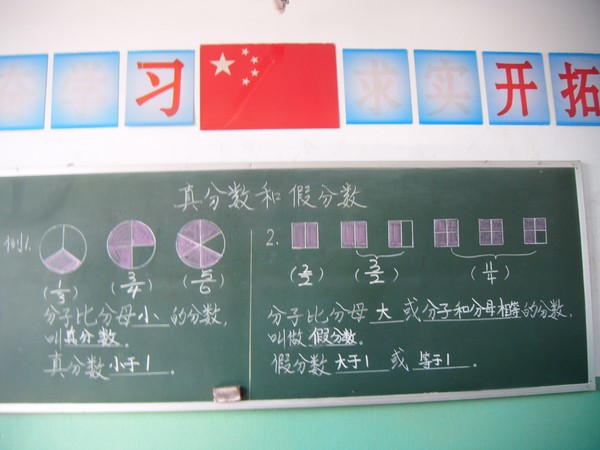 奋学习 求实开拓
真分数和假分数
例1.
(1/3) (3/4) (5/6)
分子比分母小的分数,
叫真分数.
真分数小于1.
2.
(2/2) (3/2) (11/4)
分子比分母大或分子和分母相等的分数,
叫做假分数.
假分数大于1或等于1.